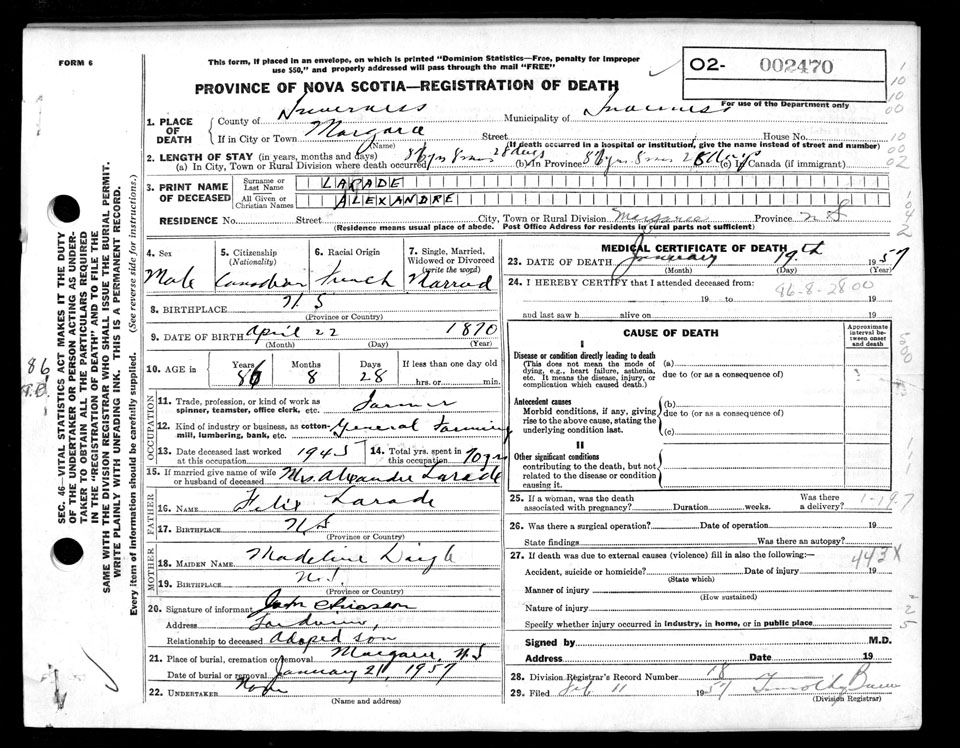 FORM 6
This form, if placed in an envelope, on which is printed "Dominion Statistics—Free, penalty for improper
use $50," and properly addressed will pass through the mail "FREE"
O2- 002470
For use of the Department only
PROVINCE OF NOVA SCOTIA—REGISTRATION OF DEATH
1. PLACE OF DEATH
County of Inverness Municipality of Inverness
If in City or Town Margaree Street House No.
(Name) (If death occurred in a hospital or institution, give the name instead of street and number)
2. LENGTH OF STAY (in years, months and days)
(a) In City, Town or Rural Division where death occurred 86 yrs 8 mos 28 days (b) In Province 86 yrs 8 mos 28 days (c) In Canada (if immigrant)
3. PRINT NAME OF DECEASED
Surname or Last Name LARADE
All Given or Christian Names ALEXANDRE
RESIDENCE No. Street City, Town or Rural Division Margaree Province N S
(Residence means usual place of abode. Post Office Address for residents in rural parts not sufficient)
4. Sex Male
5. Citizenship (Nationality) Canadian
6. Racial Origin French
7. Single, Married, Widowed or Divorced (write the word) Married
8. BIRTHPLACE N S
(Province or Country)
9. DATE OF BIRTH April 22 1870
(Month) (Day) (Year)
10. AGE in Years 86 Months 8 Days 28 If less than one day old
hrs. or min.
OCCUPATION
11. Trade, profession, or kind of work as spinner, teamster, office clerk, etc. Farmer
12. Kind of industry or business, as cotton-mill, lumbering, bank, etc. General Farming
13. Date deceased last worked at this occupation 1945
14. Total yrs. spent in this occupation 70 yrs
15. If married give name of wife or husband of deceased Mrs. Alexandre Larade
FATHER
16. NAME Felix Larade
17. BIRTHPLACE N S
(Province or Country)
MOTHER
18. MAIDEN NAME Madeline Daigle
19. BIRTHPLACE N.S.
(Province or Country)
20. Signature of informant John Chiasson
Address
Relationship to deceased Adopted son
21. Place of burial, cremation or removal Margaree, N S
Date of burial or removal January 21, 1957
22. UNDERTAKER None
(Name and address)
MEDICAL CERTIFICATE OF DEATH
23. DATE OF DEATH January 19th 1957
(Month) (Day) (Year)
24. I HEREBY CERTIFY that I attended deceased from:
86-8-28 00
19 to 19
and last saw h alive on 19
CAUSE OF DEATH
Approximate interval between onset and death
I
Disease or condition directly leading to death (a)
(This does not mean the mode of dying, e.g., heart failure, asthenia, etc. It means the disease, injury, or complication which caused death.)
due to (or as a consequence of)
Antecedent causes (b)
Morbid conditions, if any, giving rise to the above cause, stating the underlying condition last.
due to (or as a consequence of)
(c)
II
Other significant conditions
contributing to the death, but not related to the disease or condition causing it.
25. If a woman, was the death associated with pregnancy? Duration weeks. Was there a delivery?
1-19.7
26. Was there a surgical operation? Date of operation 19
State findings Was there an autopsy?
27. If death was due to external causes (violence) fill in also the following:
443X
Accident, suicide or homicide? Date of injury 19
(State which)
Manner of injury
(How sustained)
Nature of injury
Specify whether injury occurred in industry, in home, or in public place
Signed by M.D.
Address Date 19
28. Division Registrar's Record Number 18
29. Filed Feb 11 1957 Timothy
(Division Registrar)
SEC. 46—VITAL STATISTICS ACT MAKES IT THE DUTY
OF THE UNDERTAKER OR PERSON ACTING AS UNDER-
TAKER TO OBTAIN ALL THE PARTICULARS REQUIRED
IN THE "REGISTRATION OF DEATH" AND TO FILE THE
SAME WITH THE DIVISION REGISTRAR WHO SHALL ISSUE THE BURIAL PERMIT.
WRITE PLAINLY WITH UNFADING INK. THIS IS A PERMANENT RECORD.
Every item of information should be carefully supplied. (See reverse side for instructions.)
86